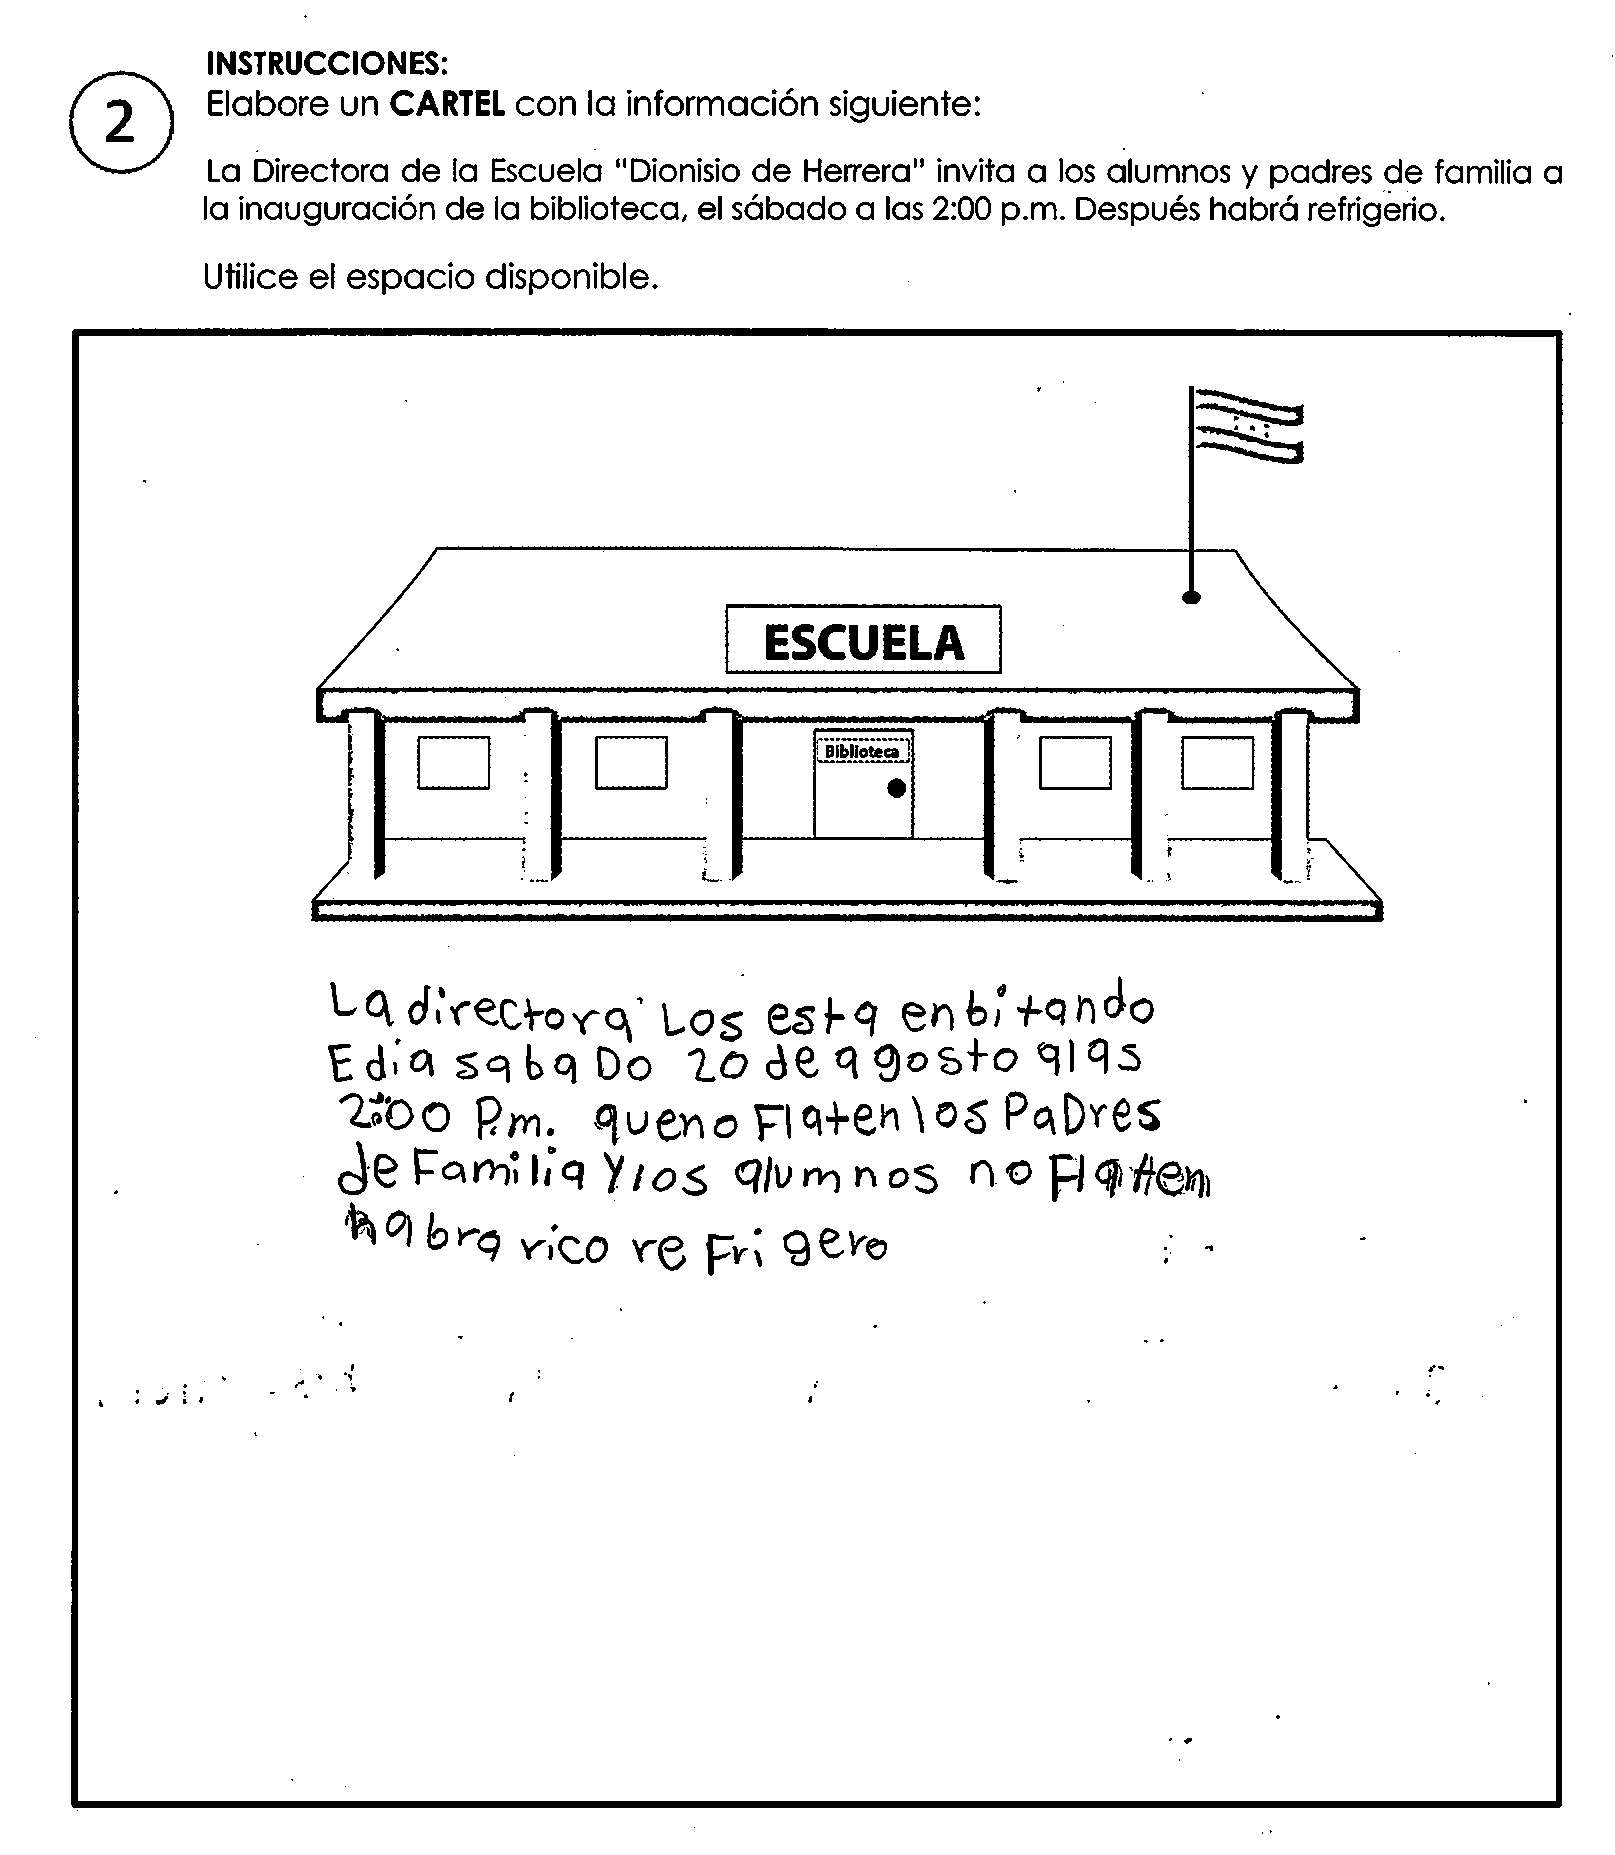 INSTRUCCIONES:
2
Elabore un CARTEL con la información siguiente:
La Directora de la Escuela "Dionisio de Herrera" invita a los alumnos y padres de familia a
la inauguración de la biblioteca, el sábado a las 2:00 p.m. Después habrá refrigerio.
Utilice el espacio disponible.
ESCUELA
Biblioteca
La directora Los esta enbitando
E dia sabaDo 20 de agosto alas
2:00 P.m. queno Flaten los PaDres
de Familia Y los alumnos no Flaten
habra rico reFrigero